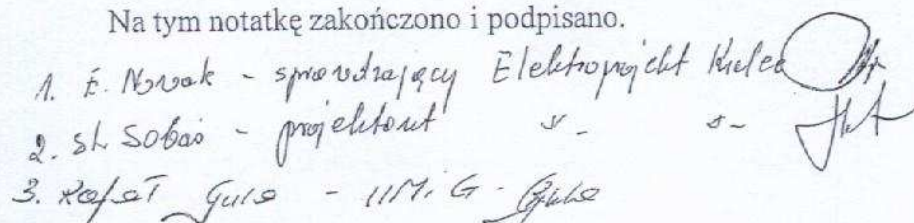 Na tym notatkę zakończono i podpisano.
1. E. Nowak - sprawdzający Elektroprojekt Kielce
2. St. Soboń - projektant -"- -"-
3. Rafał Gula - UMiG - Gula